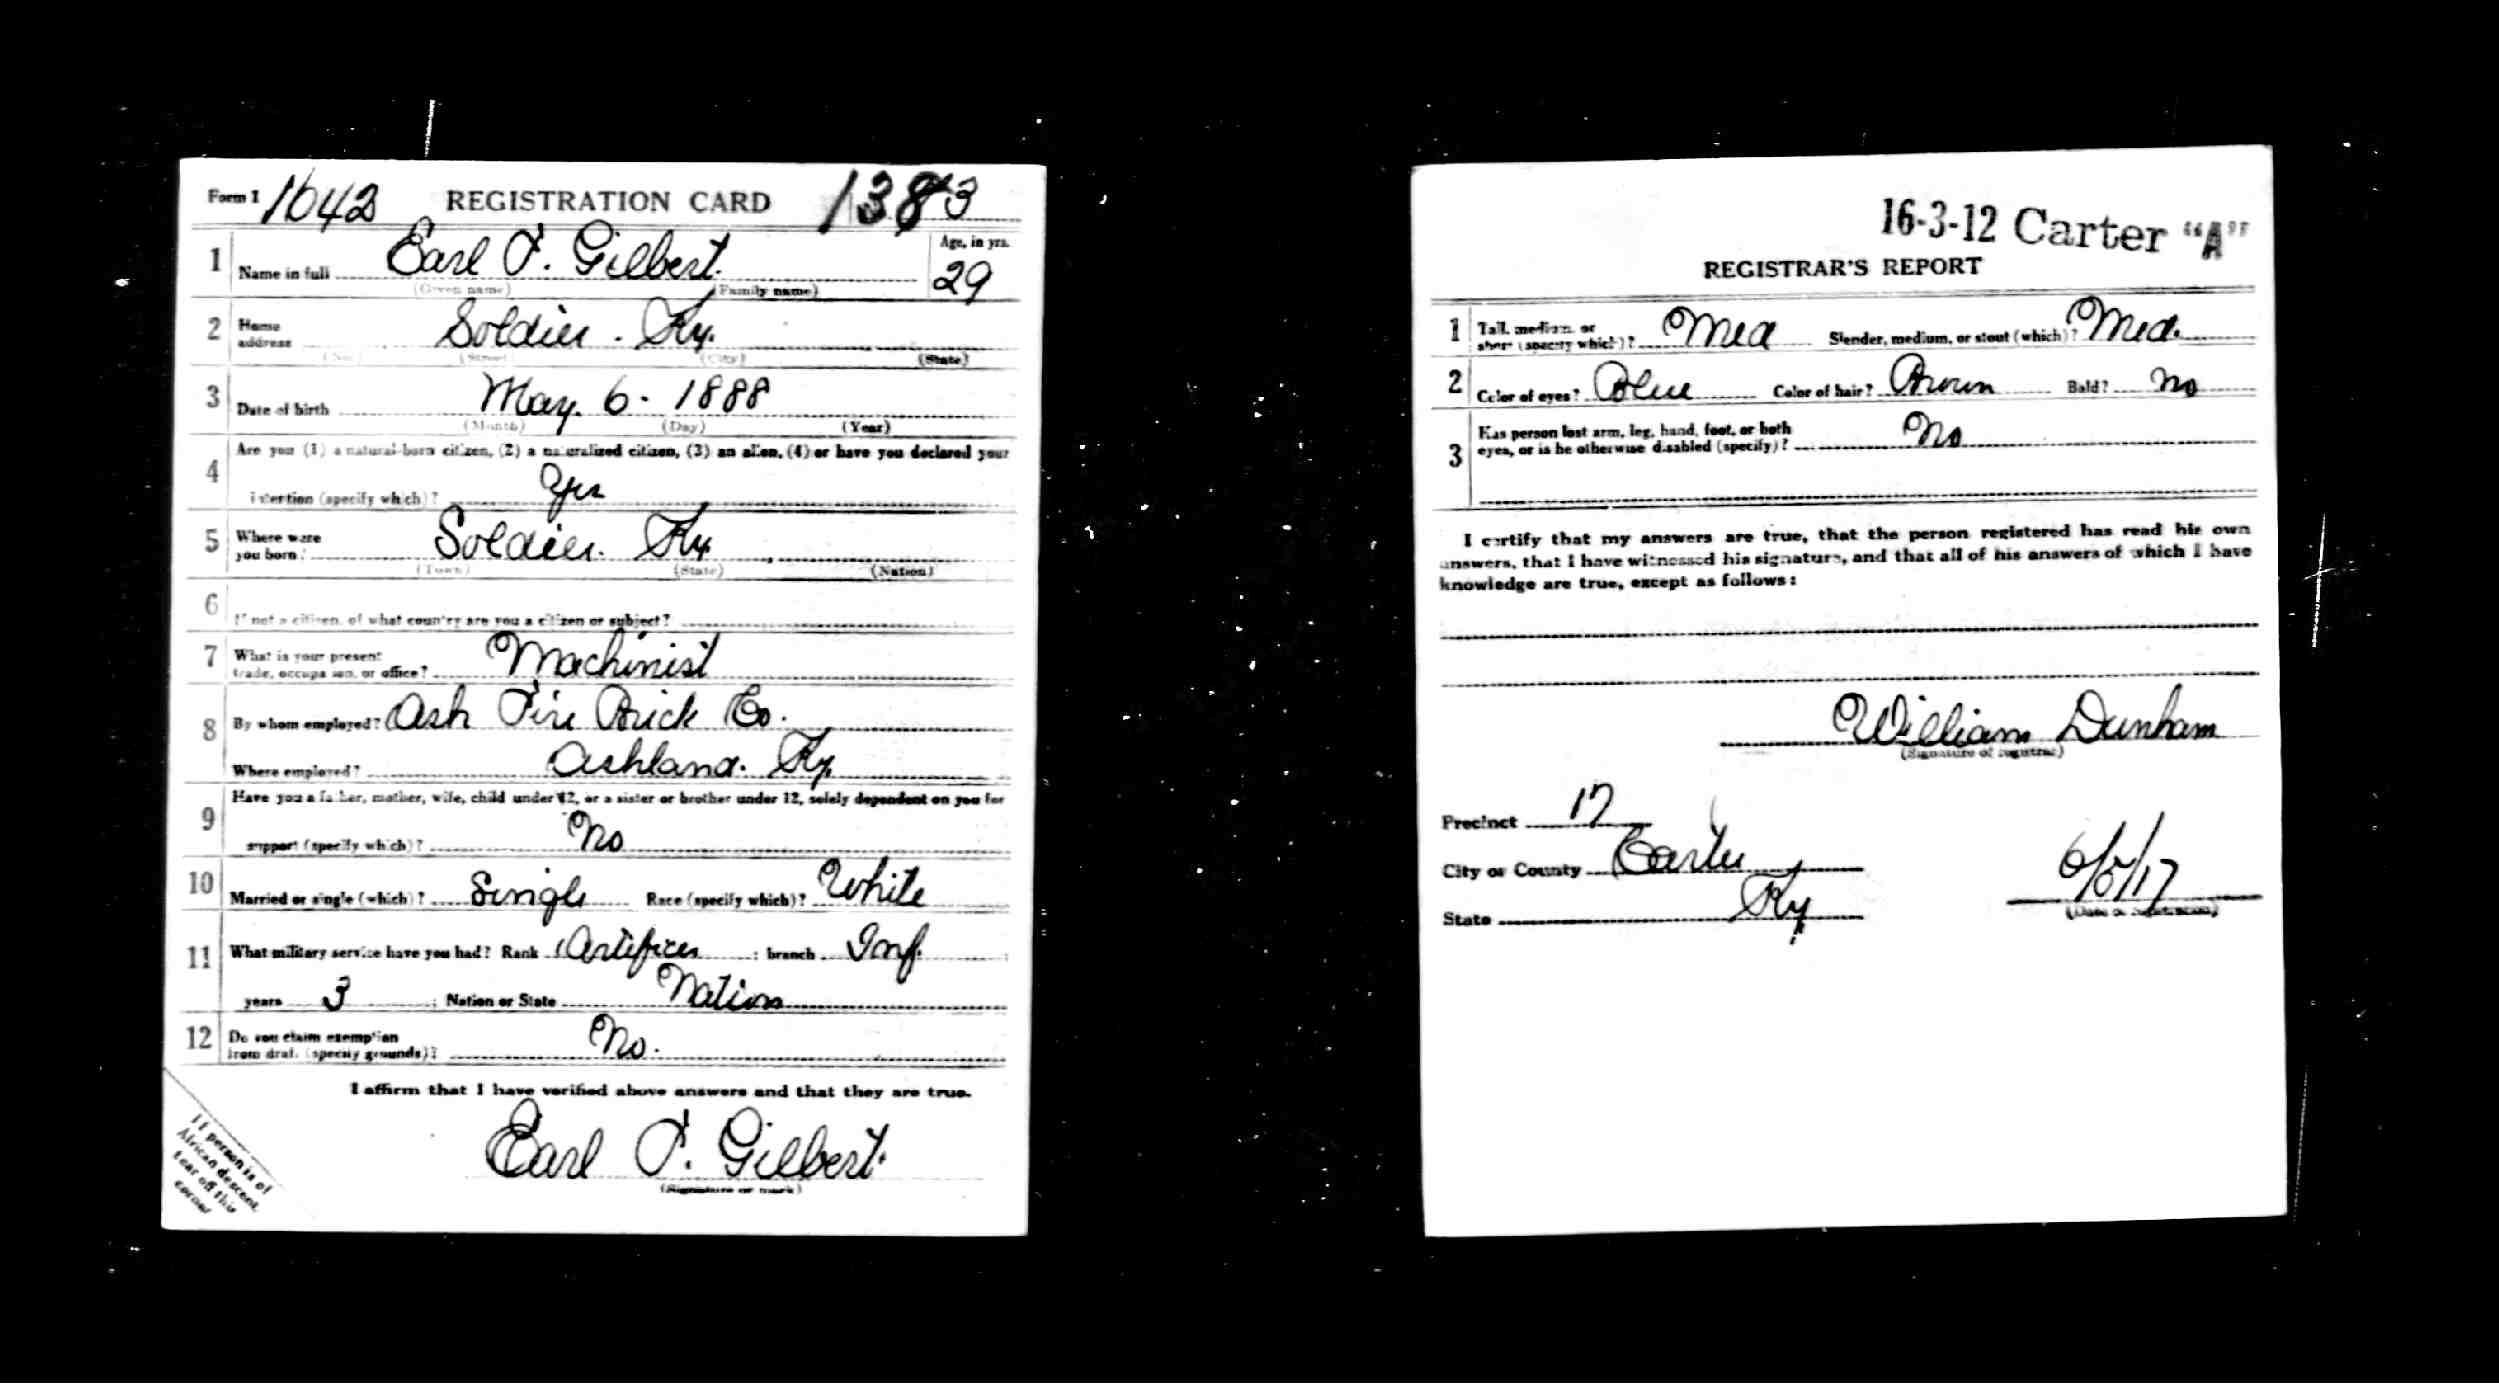 Form 1 1642 REGISTRATION CARD 1383
1 Name in full Earl T. Gilbert Age, in yrs. 29
(Given name) (Family name)
2 Home address Soldier. Ky.
(No.) (Street) (City) (State)
3 Date of birth May. 6. 1888
(Month) (Day) (Year)
4 Are you (1) a natural-born citizen, (2) a naturalized citizen, (3) an alien, (4) or have you declared your
intention (specify which)? Yes
5 Where were you born? Soldier. Ky
(Town) (State) (Nation)
6 If not a citizen, of what country are you a citizen or subject?
7 What is your present
trade, occupation, or office? Machinist
8 By whom employed? Ash Fire Brick Co.
Where employed? Ashland. Ky
9 Have you a father, mother, wife, child under 12, or a sister or brother under 12, solely dependent on you for
support (specify which)? No
10 Married or single (which)? Single Race (specify which)? White
11 What military service have you had? Rank Artificer ; branch Inf. ;
years 3 ; Nation or State Nation
12 Do you claim exemption
from draft (specify grounds)? No.
I affirm that I have verified above answers and that they are true.
Earl T. Gilbert.
(Signature or mark)
If person is of
African descent,
tear off this
corner
16-3-12 Carter "A"
REGISTRAR'S REPORT
1 Tall, medium, or
short (specify which)? Med Slender, medium, or stout (which)? Med.
2 Color of eyes? Blue Color of hair? Brown Bald? No
3 Has person lost arm, leg, hand, foot, or both
eyes, or is he otherwise disabled (specify)? No
I certify that my answers are true, that the person registered has read his own
answers, that I have witnessed his signature, and that all of his answers of which I have
knowledge are true, except as follows:
William Dunham
(Signature of registrar)
Precinct 17
City or County Carter
State Ky
6/5/17
(Date of registration)